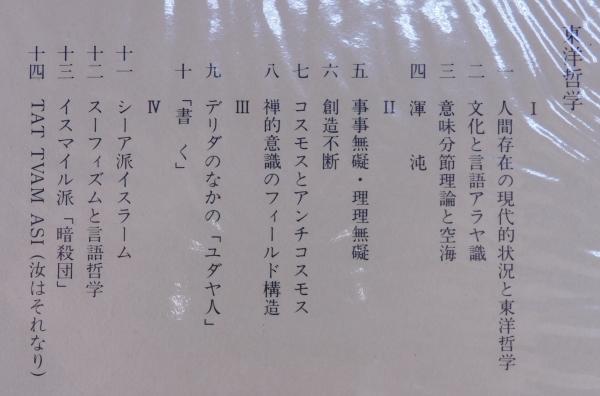 東洋哲学
I
一 人間存在の現代的状況と東洋哲学
二 文化と言語アラヤ識
三 意味分節理論と空海
四 渾沌
II
五 事事無礙・理理無礙
六 創造不断
七 コスモスとアンチコスモス
八 禅的意識のフィールド構造
III
九 デリダのなかの「ユダヤ人」
十 「書く」
IV
十一 シーア派イスラーム
十二 スーフィズムと言語哲学
十三 イスマイル派「暗殺団」
十四 TAT TVAM ASI(汝はそれなり)